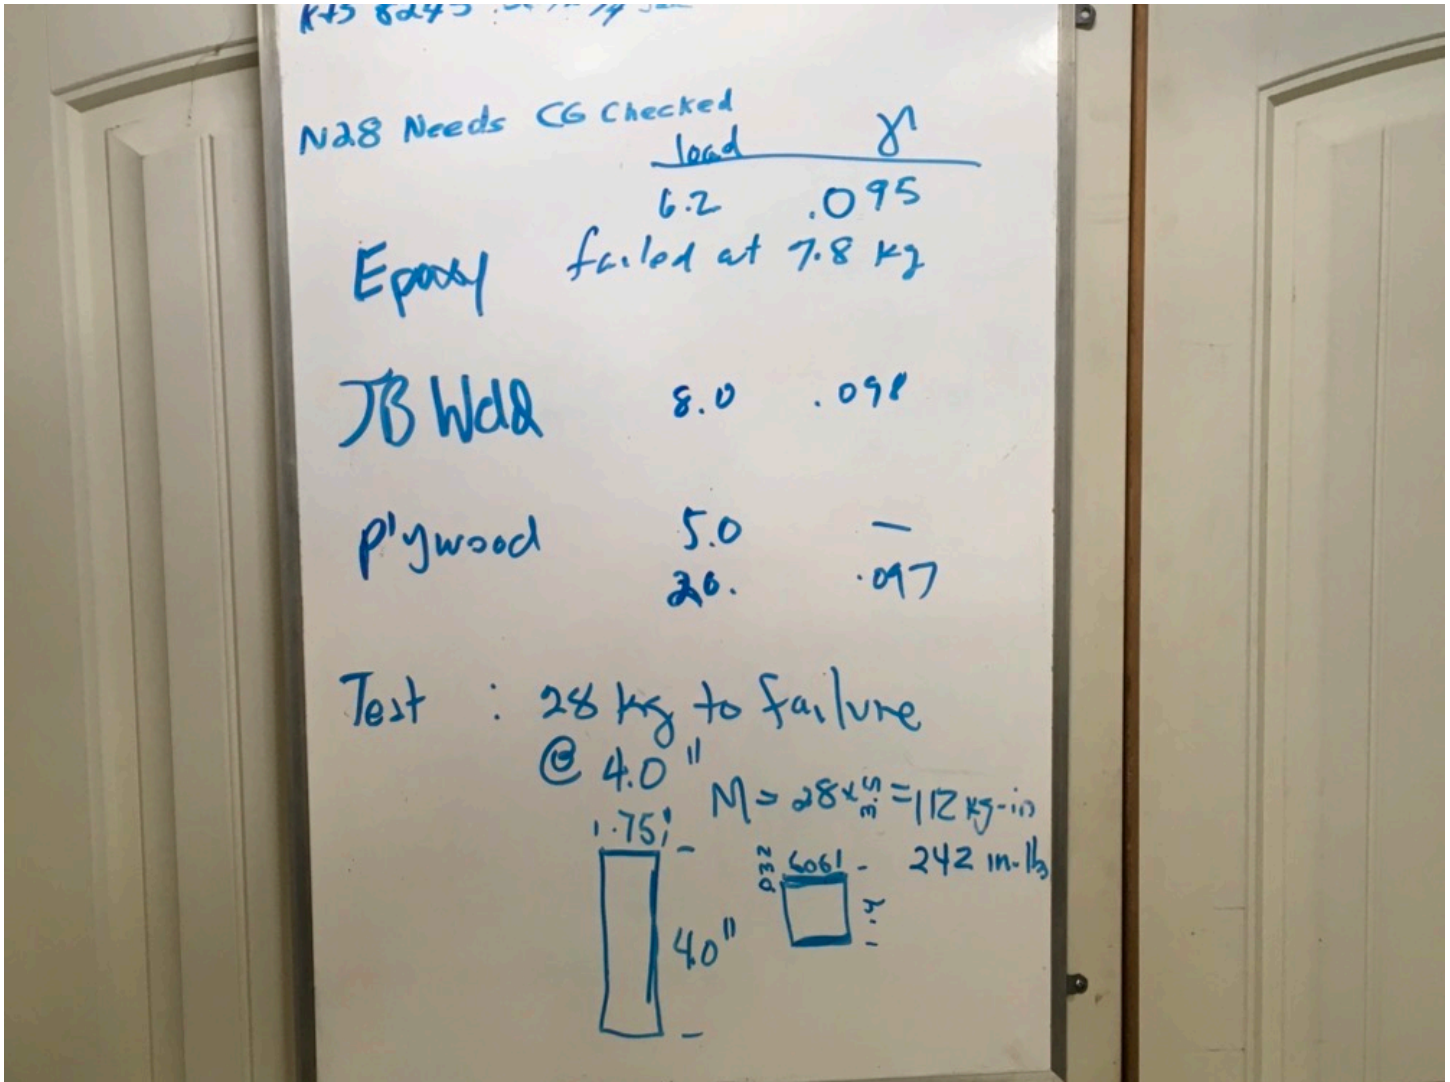 N28 Needs CG Checked
load γ
6.2 .095
Epoxy failed at 7.8 kg
JB Weld 8.0 .098
plywood 5.0 —
26. .097
Test : 28 kg to failure
@ 4.0"
M = 28 x 3.5 = 112 kg-in
1.75"
.032 6061 242 in-lb
4.0"